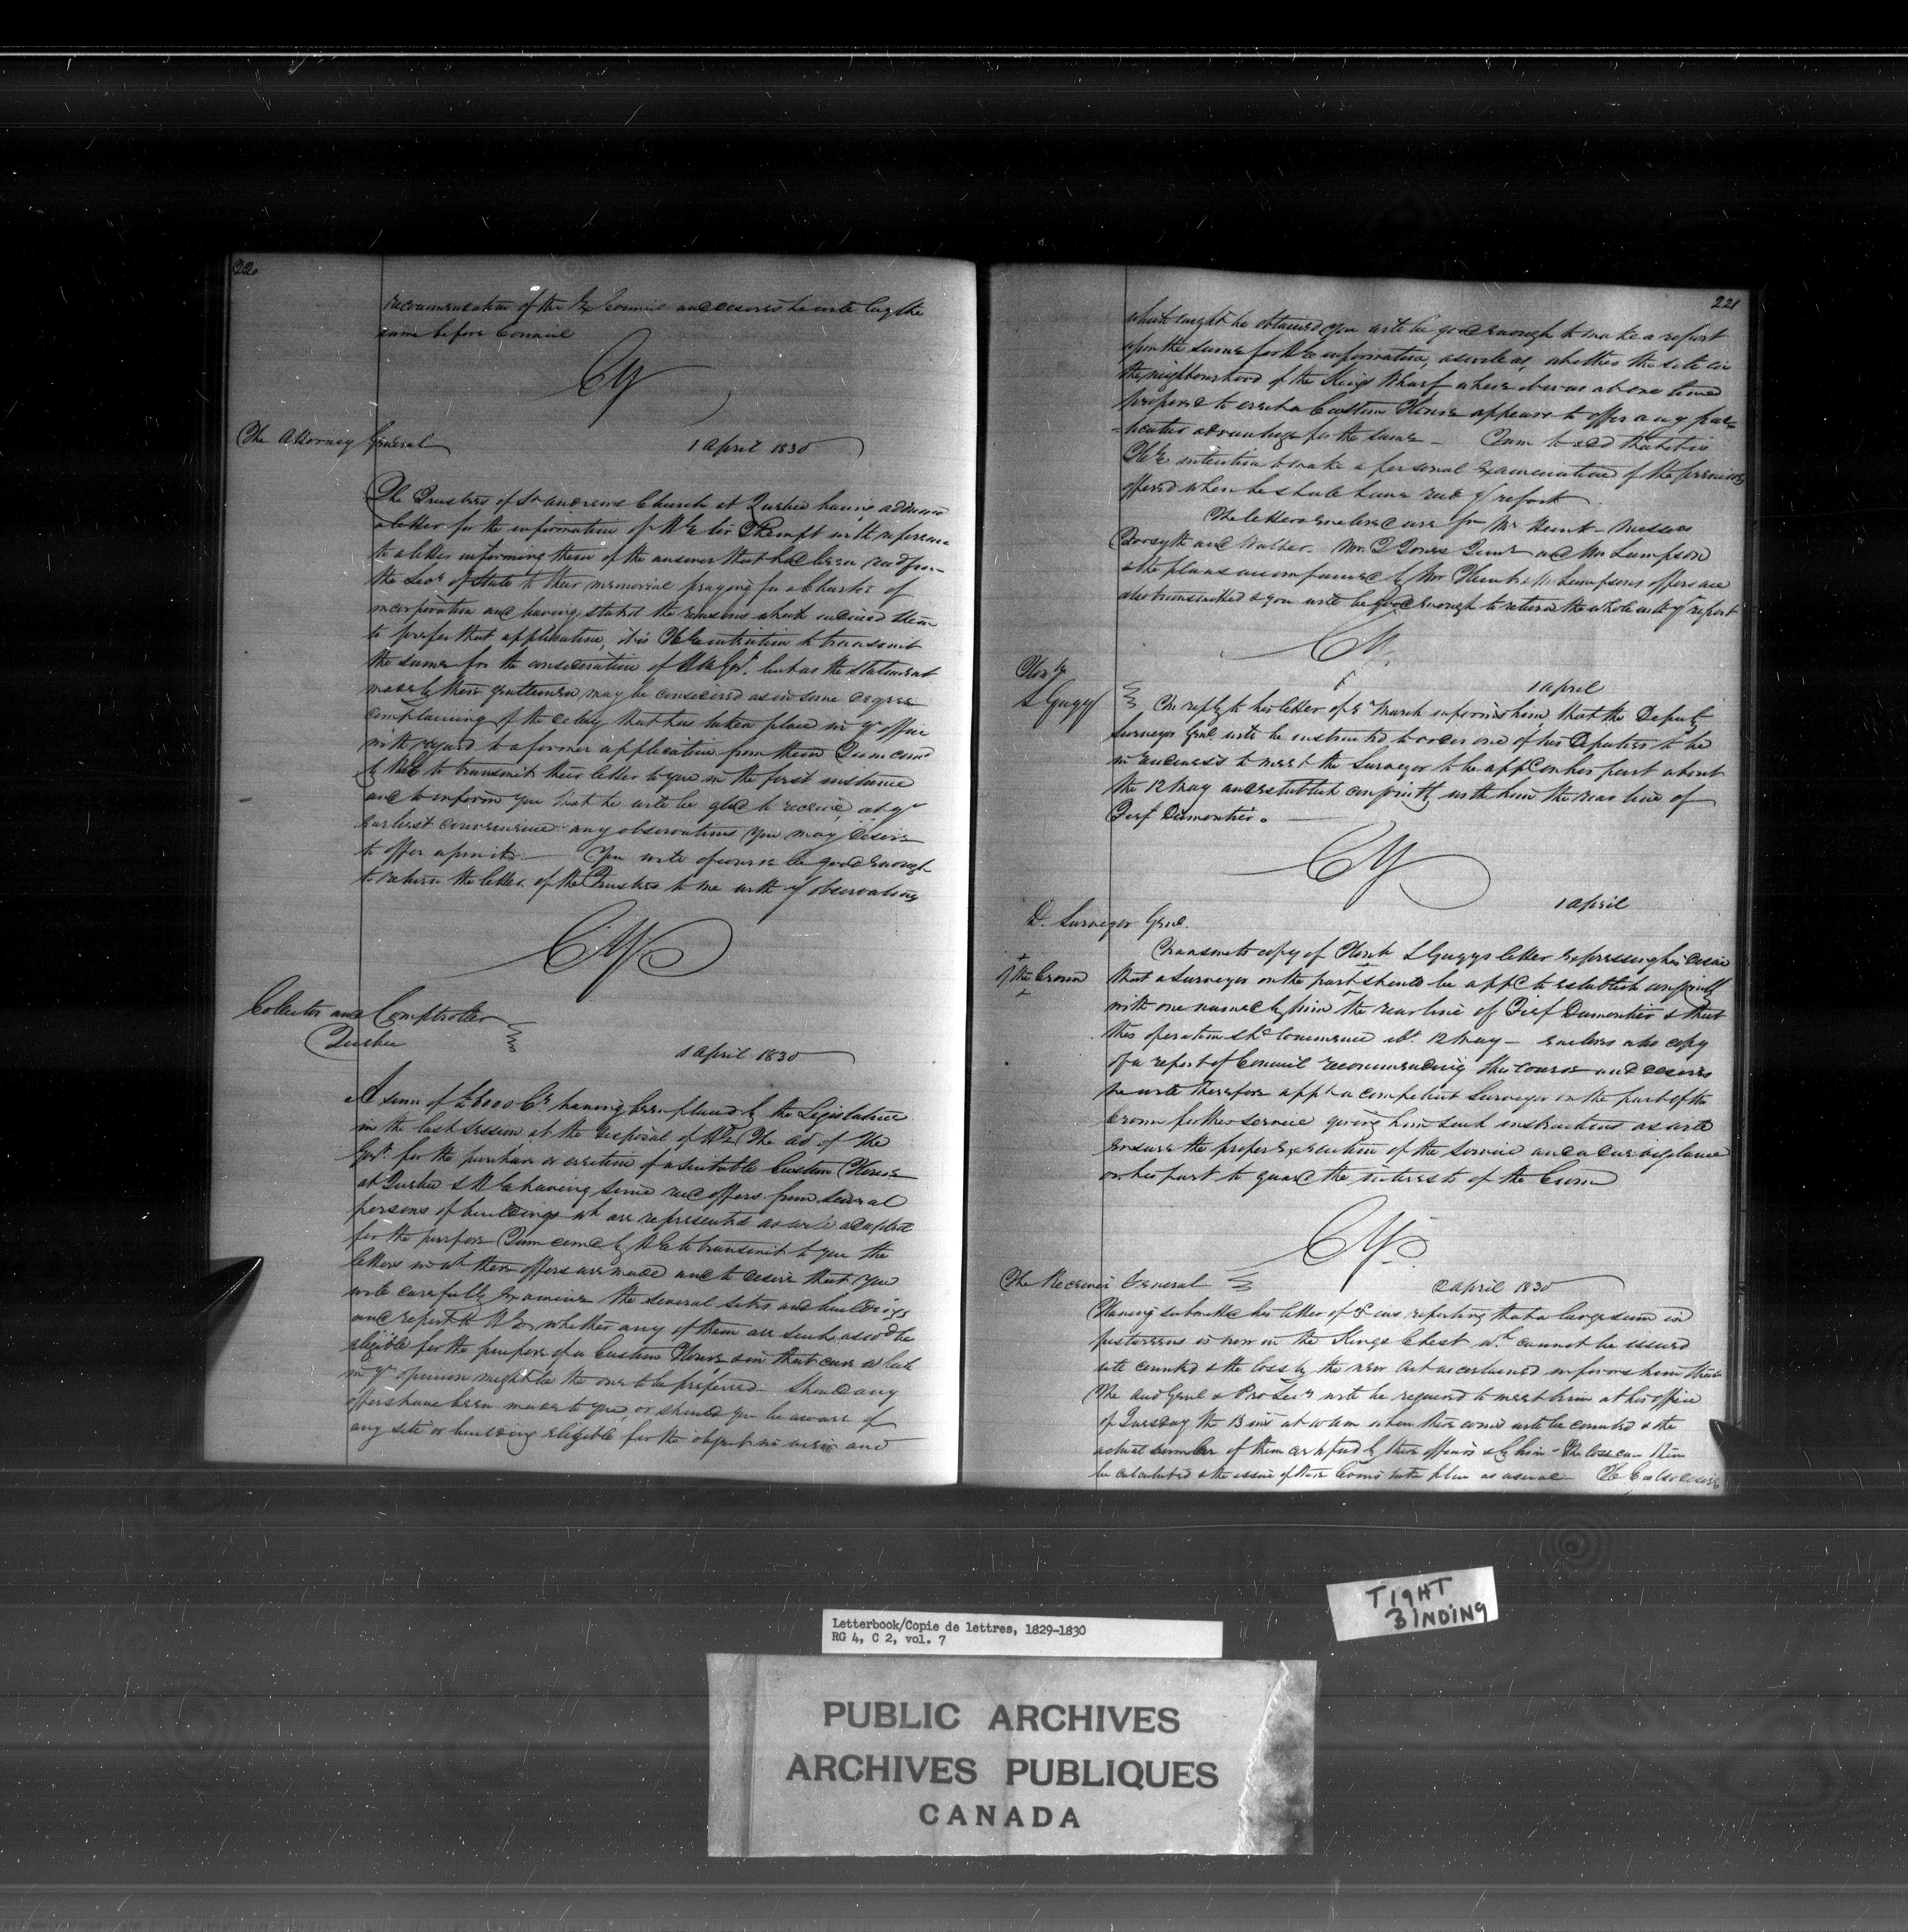 220
recommendation of the Ex Council and desires he will lay the
same before Council
CY
The Attorney General
1 April 1830
The Trustees of St Andrews Church at Quebec having addressed
a letter for the information of H E Sir J Kempt with reference
to a letter informing them of the answer that had been recd from
the Secy of State to their memorial praying for a Charter of
incorporation and having stated the reasons which induced them
to prefer that application, it is H E intention to transmit
the same for the consideration of H M Govt. but as the statement
made by these gentlemen may be considered as in some degree
complaining of the delay that has taken place in yr office
with regard to a former application from them I am comd
by H E to transmit their letter to you in the first instance
and to inform you that he will be glad to receive, at yr
earliest convenience any observations you may desire
to offer upon it. You will of course be good enough
to return the letter of the Trustees to me with yr observations
CY
Collector and Comptroller
Quebec
1 April 1830
A sum of £6000 Cy having been placed by the Legislature
in the last session at the disposal of H E The Ad. of the
Govt. for the purchase or erection of a suitable Custom House
at Quebec & H E having since recd offers from several
persons of buildings wh are represented as well adapted
for the purpose I am comd by H E to transmit to you the
letters in wh these offers are made and to desire that you
will carefully examine the several sites and buildings
and report to H E whether any of them are such as wod be
eligible for the purpose of a Custom House & in that case which
in yr opinion might be the one to be preferred. Should any
offers have been made to you, or should you be aware of
any site or building eligible for the object in view and
221
which might be obtained you will be good enough to make a report
upon the same for H E information, as well as, whether the site in
the neighbourhood of the Kings Wharf where it was at one time
proposed to erect a Custom House appears to offer any par-
-ticular advantage for the same - I am to add that it is
H E intention to make a personal examination of the premises
offered when he shall have recd yr report.
The letters enclosed are from Mr Hunt - Messrs
Forsyth and Walker. Mr J Jones Junr and Mr Lampson
& the plans accompanied by Mr Hunt & Mr Lampsons offers are
also transmitted & you will be good enough to return the whole with yr report
CY
Honble
L Gugy
1 April
In reply to his letter of March informs him that the Deputy
Surveyor Genl will be instructed to order one of his Deputies to be
in readiness to meet the Surveyor to be appd on his part about
the 12 May and establish conjointly with him the rear line of
Fief Dumontier.
CY
1 April
D. Surveyor Genl.
Transmits copy of Honble L Gugys letter expressing his desire
of the Crown
that a Surveyor on the part should be appd to establish conjointly
with one named by him the rear line of Fief Dumontier & that
this operation shd commence abt. 12 May - encloses also copy
of a report of Council recommending this course and desires
he will therefore appt a competent Surveyor on the part of the
Crown for this service giving him such instructions as will
ensure the proper execution of the service and a due vigilance
on his part to guard the interests of the Crown
CY
The Receiver General
2 April 1830
Having submitted his letter of ins reporting that a large sum in
pistareens is now in the Kings Chest wh. cannot be issued
till counted & the loss by the new Act ascertained informs him that
The Aud Genl & Pro Secy will be required to meet him at his office
of Tuesday the 13 inst at 10 am when these coins will be counted & the
actual number of them certified by these officers & by him - The loss can then
be calculated & the issue of these Coins take place as usual - H E also desires
Letterbook/Copie de lettres, 1829-1830
RG 4, C 2, vol. 7
TIGHT
BINDING
PUBLIC ARCHIVES
ARCHIVES PUBLIQUES
CANADA